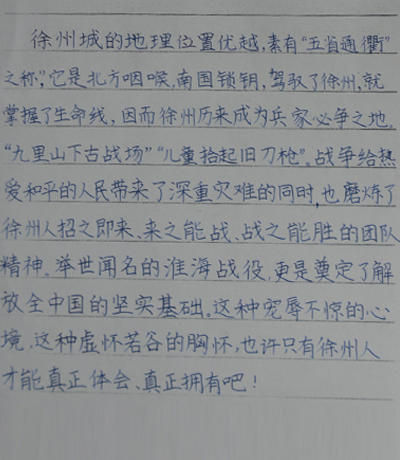 徐州城的地理位置优越,素有“五省通衢”
之称”,它是北方咽喉,南国锁钥,驾驭了徐州,就
掌握了生命线,因而徐州历来成为兵家必争之地。
“九里山下古战场”“儿童拾起旧刀枪”。战争给热
爱和平的人民带来了深重灾难的同时,也磨炼了
徐州人招之即来、来之能战、战之能胜的团队
精神。举世闻名的淮海战役,更是奠定了解
放全中国的坚实基础。这种宠辱不惊的心
境,这种虚怀若谷的胸怀,也许只有徐州人
才能真正体会、真正拥有吧!